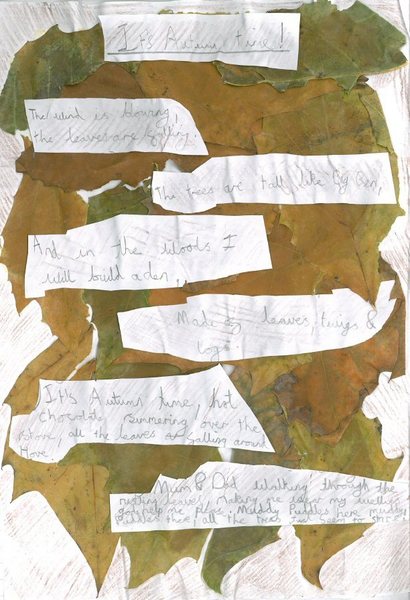 It's Autumn time!
The wind is blowing,
the leaves are falling.
The trees are tall like Big Ben,
And in the woods I
will build a den,
Made of leaves, twigs &
logs.
It's Autumn time, hot
chocolate, simmering, over the
stove, all the leaves are falling around
Hove.
Mum & Dad walking through the
rusting leaves, Making me wear my wellies
god help me please. Muddy Puddles here muddy
Puddles there, all the trees just seem to stare.